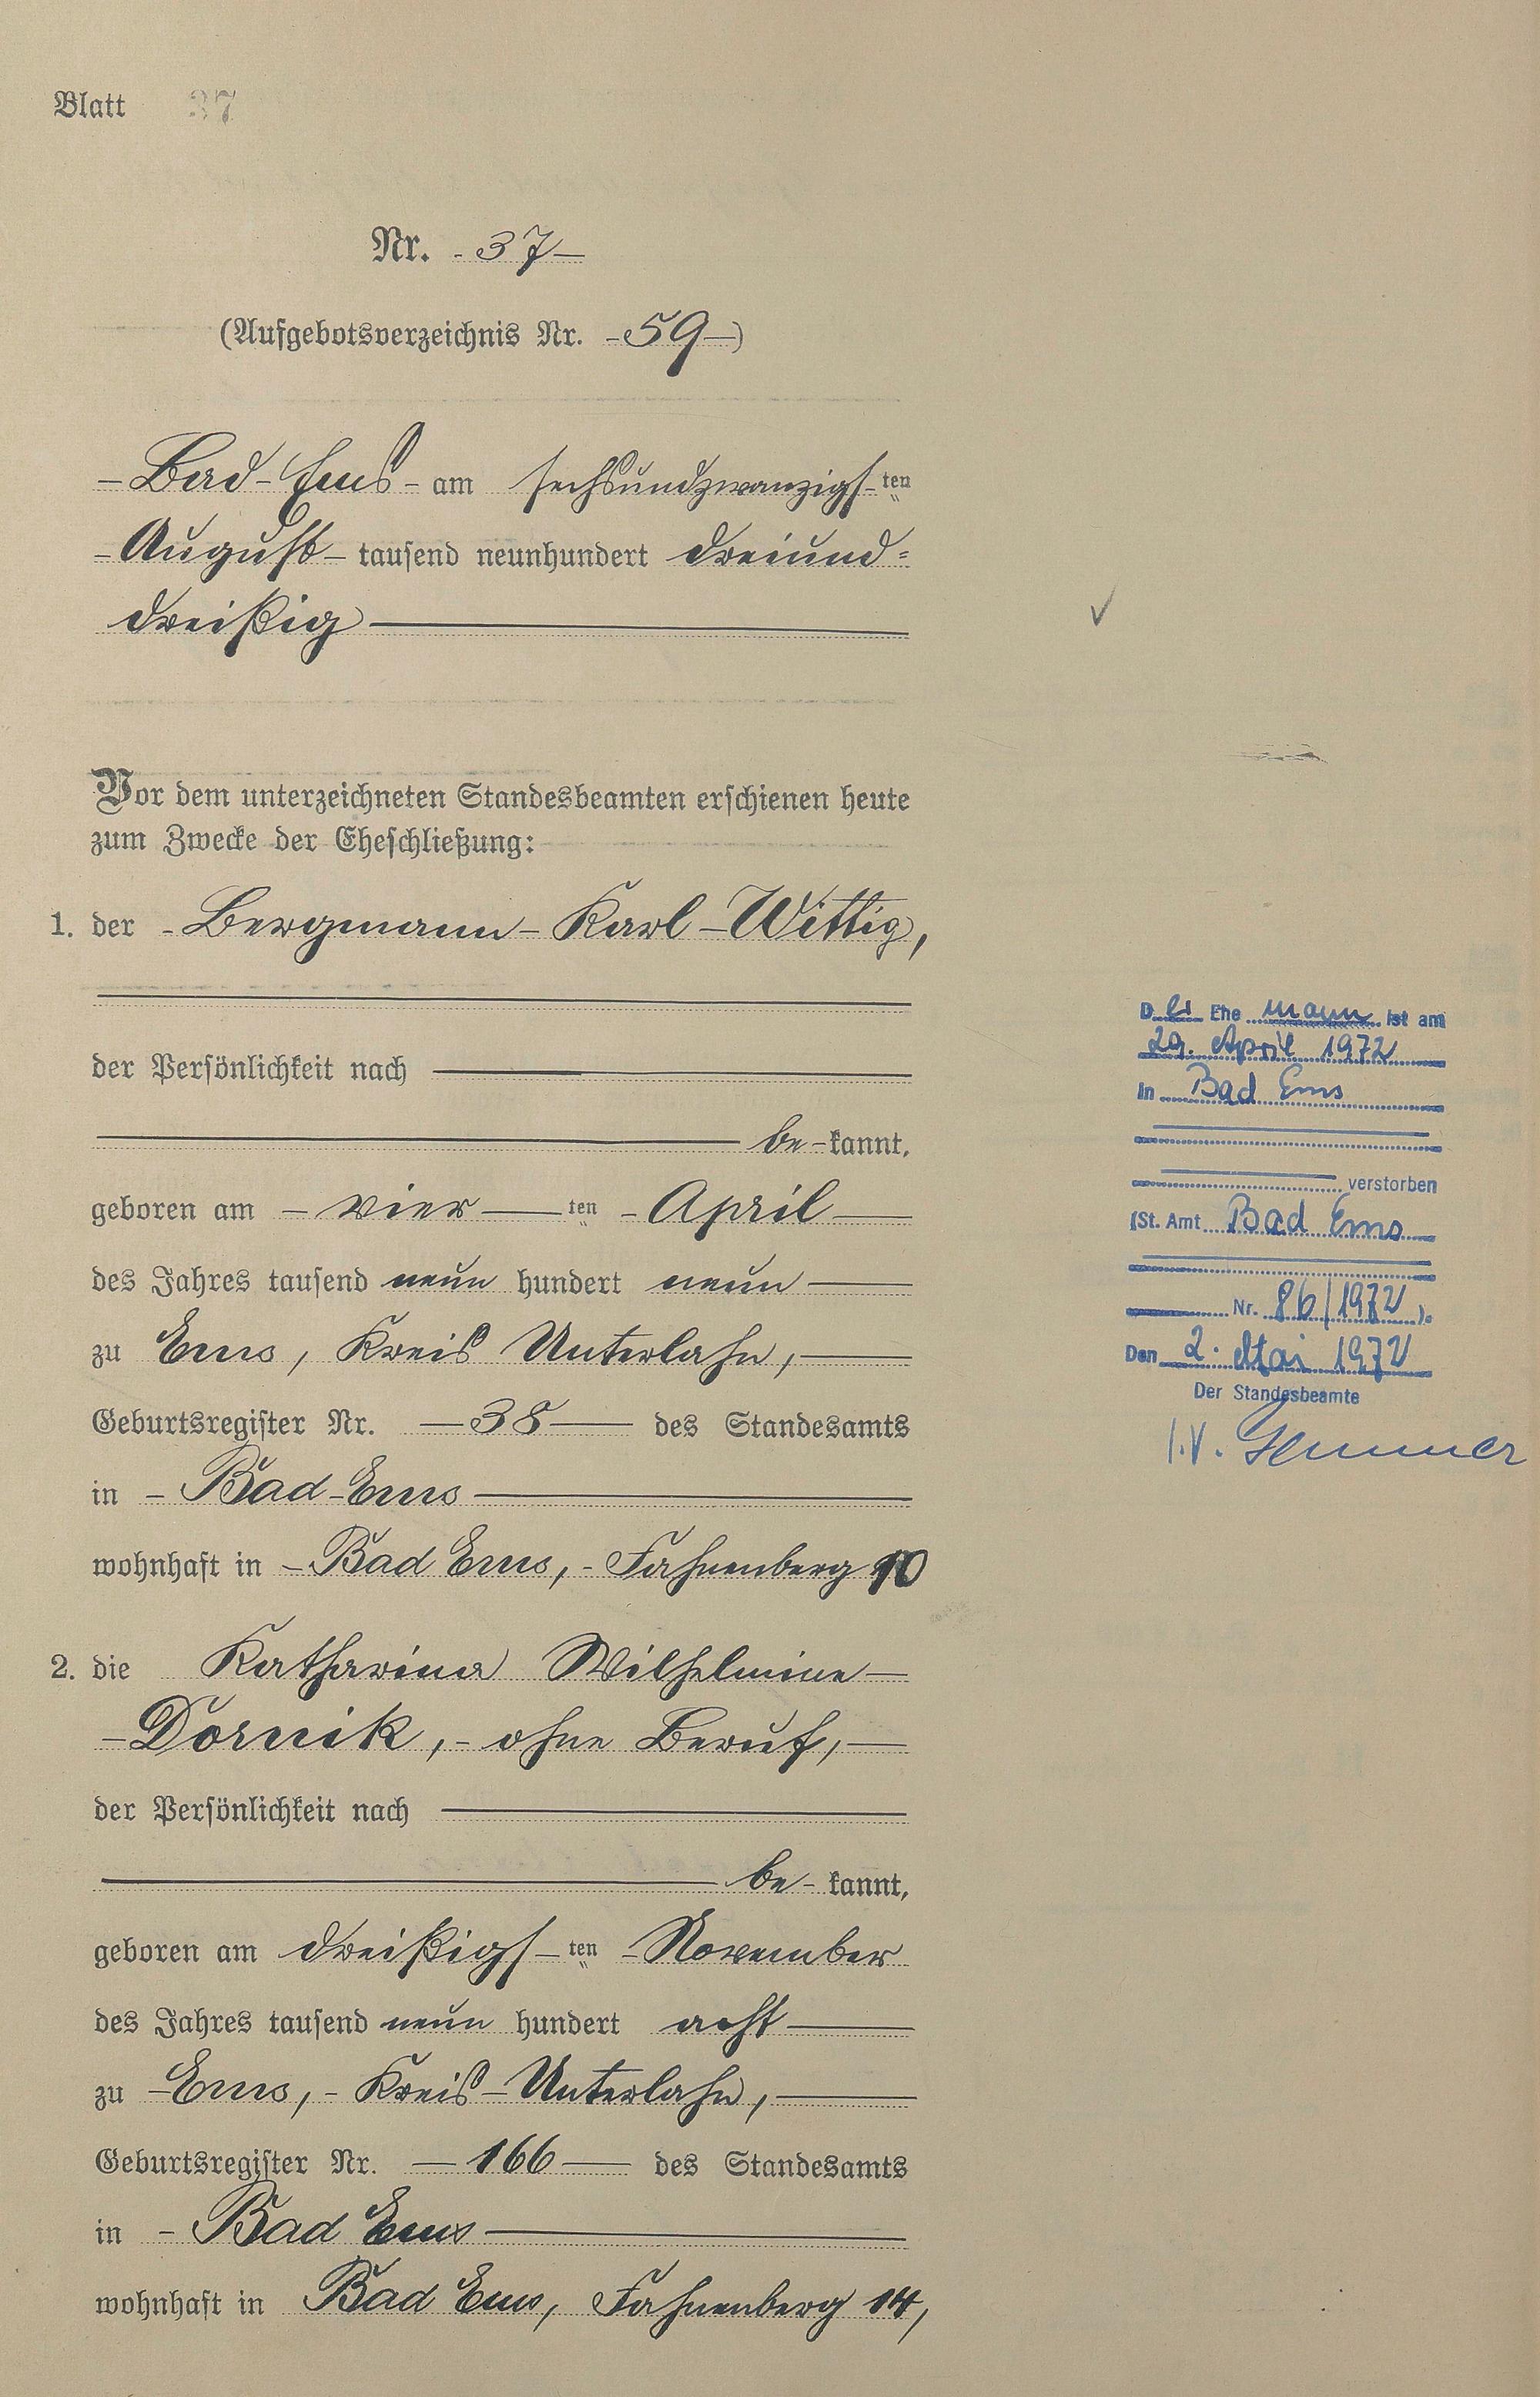 Blatt 37
Nr. - 37 -
(Aufgebotsverzeichnis Nr. - 59 -)
- Bad - Ems - am sechsundzwanzigs - ten
- August - tausend neunhundert dreiund=
dreißig
Vor dem unterzeichneten Standesbeamten erschienen heute
zum Zwecke der Eheschließung:
1. der - Bergmann - Karl - Wittig,
der Persönlichkeit nach
be - kannt,
geboren am - vier - ten - April -
des Jahres tausend neun hundert neun -
zu Ems, Kreis Unterlahn, -
Geburtsregister Nr. - 38 - des Standesamts
in - Bad - Ems -
wohnhaft in - Bad Ems, - Fahnenberg 10
2. die Katharina Wilhelmine -
- Dornik, - ohne Beruf, -
der Persönlichkeit nach
be - kannt,
geboren am dreißigs - ten - November
des Jahres tausend neun hundert acht -
zu - Ems, - Kreis - Unterlahn, -
Geburtsregister Nr. - 166 - des Standesamts
in - Bad Ems -
wohnhaft in Bad Ems, Fahnenberg 14,
Der Ehemann ist am
29. April 1972
in Bad Ems
verstorben
(St. Amt Bad Ems
Nr. 86/1972).
Den 2. Mai 1972
Der Standesbeamte
I.V.